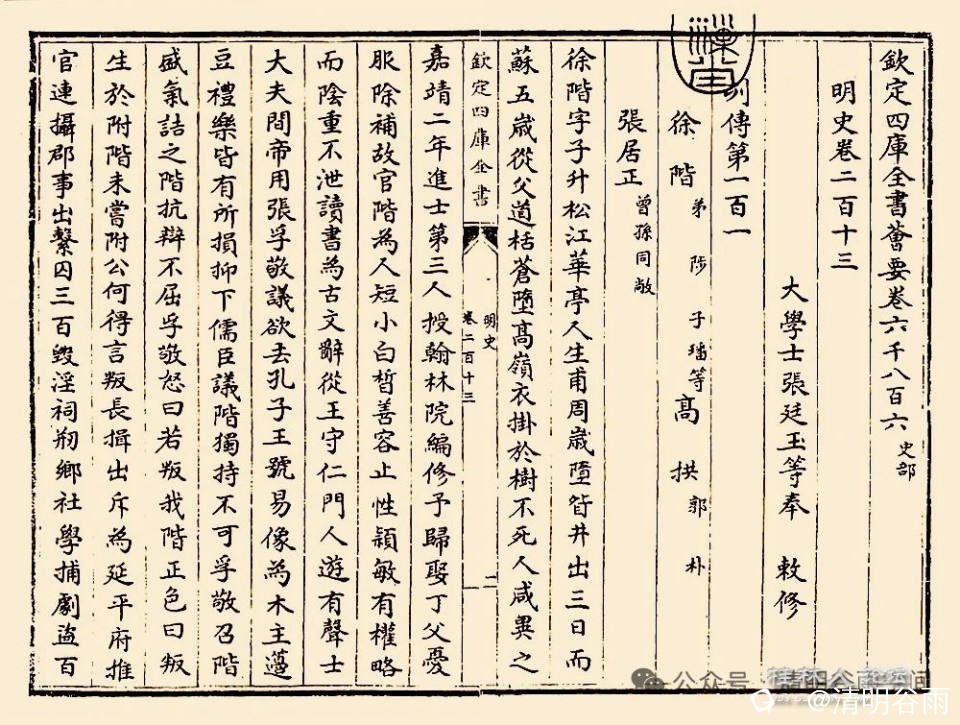 欽定四庫全書薈要卷六千八百六 史部
明史卷二百十三
大學士張廷玉等奉 敕修
列傳第一百一
徐階 弟陟 子璠等 高拱 郭朴
張居正 曾孫同敞
徐階字子升松江華亭人生甫周歲墮眢井出三日而
蘇五歲從父道括蒼墮高嶺衣掛於樹不死人咸異之
嘉靖二年進士第三人授翰林院編修予歸娶丁父憂
欽定四庫全書
明史
卷二百十三
一
服除補故官階為人短小白皙善容止性穎敏有權略
而陰重不泄讀書為古文辭從王守仁門人遊有聲士
大夫間帝用張孚敬議欲去孔子王號易像為木主籩
豆禮樂皆有所損抑下儒臣議階獨持不可孚敬召階
盛氣詰之階抗辯不屈孚敬怒曰若叛我階正色曰叛
生於附階未嘗附公何得言叛長揖出斥為延平府推
官連攝郡事出繫囚三百毀淫祠刱鄉社學捕劇盜百
公众号
@清明谷雨